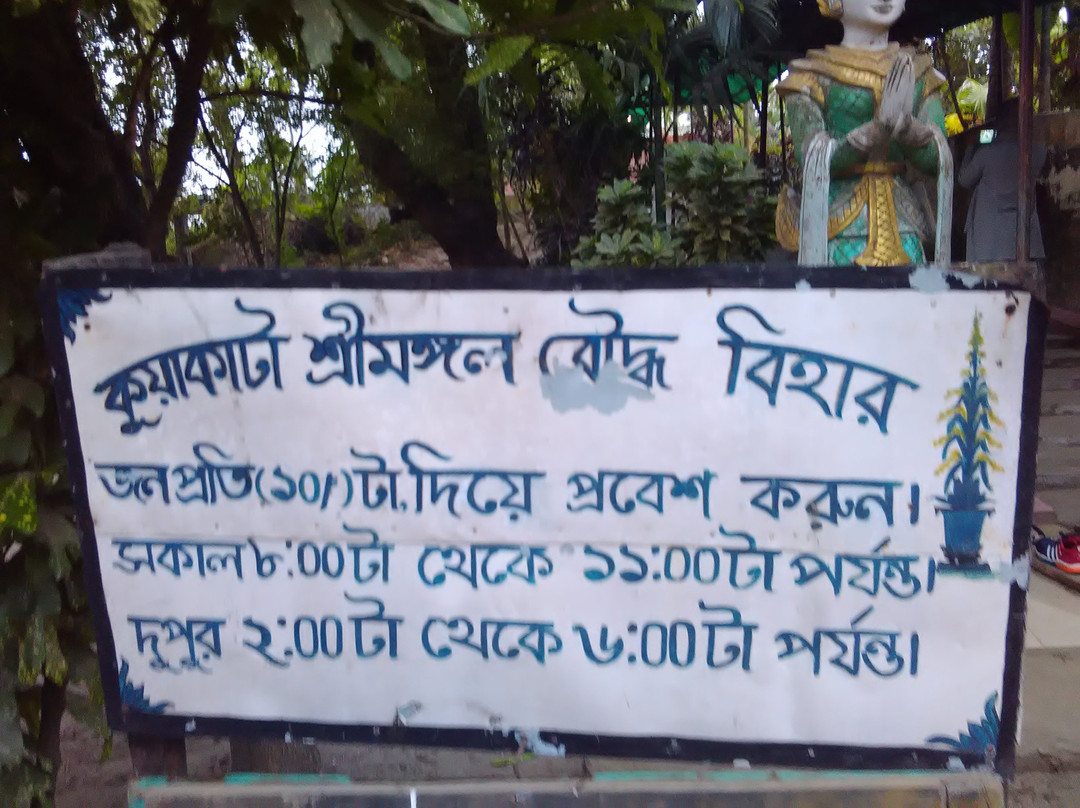 কুয়াকাটা শ্রীমঙ্গল বৌদ্ধ বিহার
জন প্রতি (১০/) টা. দিয়ে প্রবেশ করুন।
সকাল ৮:০০ টা থেকে ১১:০০ টা পর্যন্ত।
দুপুর ২:০০ টা থেকে ৬:০০ টা পর্যন্ত।